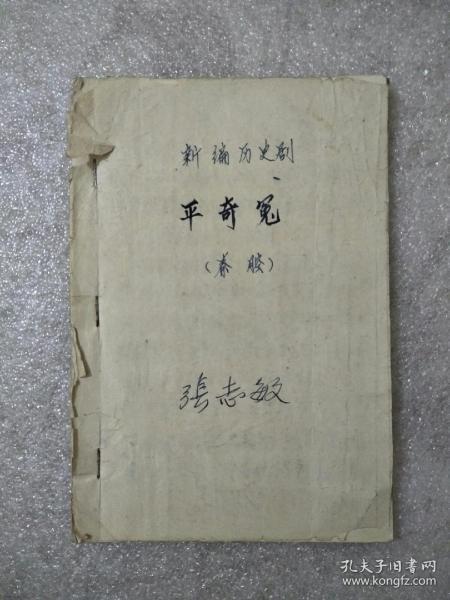 新编历史剧
平奇冤
（秦腔）
張志敏
孔夫子旧书网
www.kongfz.com